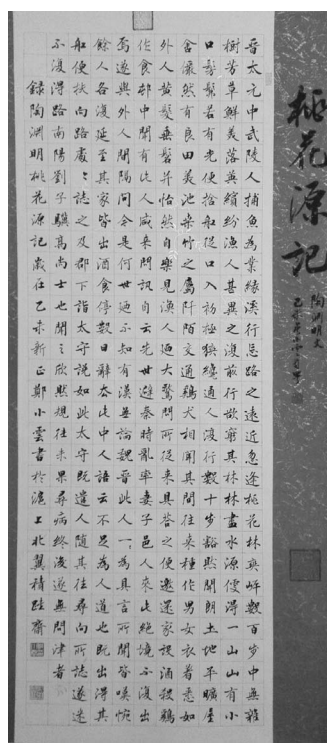 桃花源記
陶淵明文
晉太元中武陵人捕魚為業緣溪行忘路之遠近忽逢桃花林夾岸數百步中無雜
樹芳草鮮美落英繽紛漁人甚異之復前行欲窮其林林盡水源便得一山山有小
口髣髴若有光便捨船從口入初極狹纔通人復行數十步豁然開朗土地平曠屋
舍儼然有良田美池桑竹之屬阡陌交通鷄犬相聞其間往來種作男女衣著悉如
外人黃髮垂髫並怡然自樂見漁人迺大驚問所從來具答之便邀還家設酒殺鷄
作食邨中聞有此人咸來問訊自云先世避秦時亂率妻子邑人來此絕境不復出
焉遂與外人間隔問今是何世迺不知有漢無論魏晉此人一一為具言所聞皆嘆惋
餘人各復延至其家皆出酒食停數日辭去此中人語云不足為人道也既出得其
船便扶向路處處誌之及郡下詣太守說如此太守既遣人隨其往尋向所誌遂迷
不復得路南陽劉子驥高尚士也聞之欣然規往未果尋病終後遂無問津者
錄陶淵明桃花源記歲在己未新正鄭小雲書於滬上北翼積跬齋